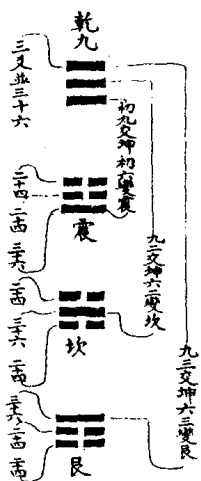 乾九
三爻並三十六
初九交坤初六變震
九二交坤六二變坎
九三交坤六三變艮
震
二十四
二十四
三十六
坎
二十四
三十六
二十四
艮
三十六
二十四
二十四